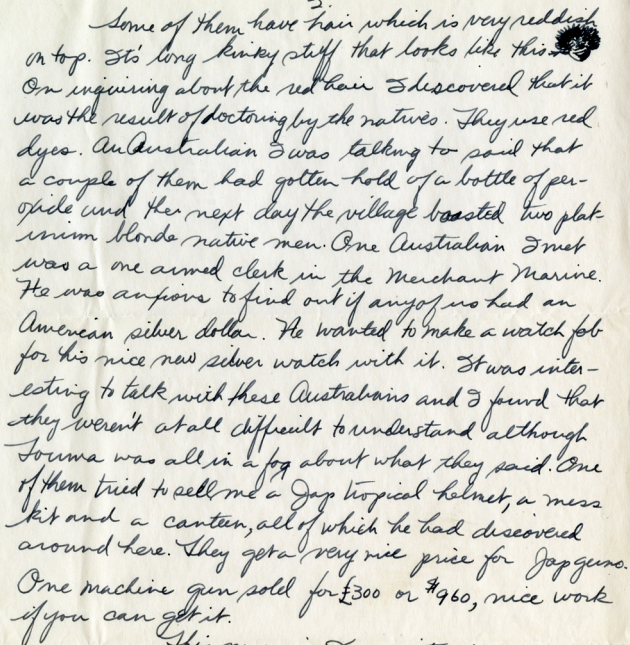 Some of them have hair which is very reddish
on top. It's long kinky stuff that looks like this
On inquiring about the red hair I discovered that it
was the result of doctoring by the natives. They use red
dyes. An Australian I was talking to said that
a couple of them had gotten hold of a bottle of per-
oxide and the next day the village boasted two plat-
inum blonde native men. One Australian I met
was a one armed clerk in the Merchant Marine.
He was anxious to find out if any of us had an
American silver dollar. He wanted to make a watch fob
for his nice new silver watch with it. It was inter-
esting to talk with these Australians and I found that
they weren't at all difficult to understand although
Touma was all in a fog about what they said. One
of them tried to sell me a Jap tropical helmet, a mess
kit and a canteen, all of which he had discovered
around here. They get a very nice price for Jap guns.
One machine gun sold for £300 or $960, nice work
if you can get it.